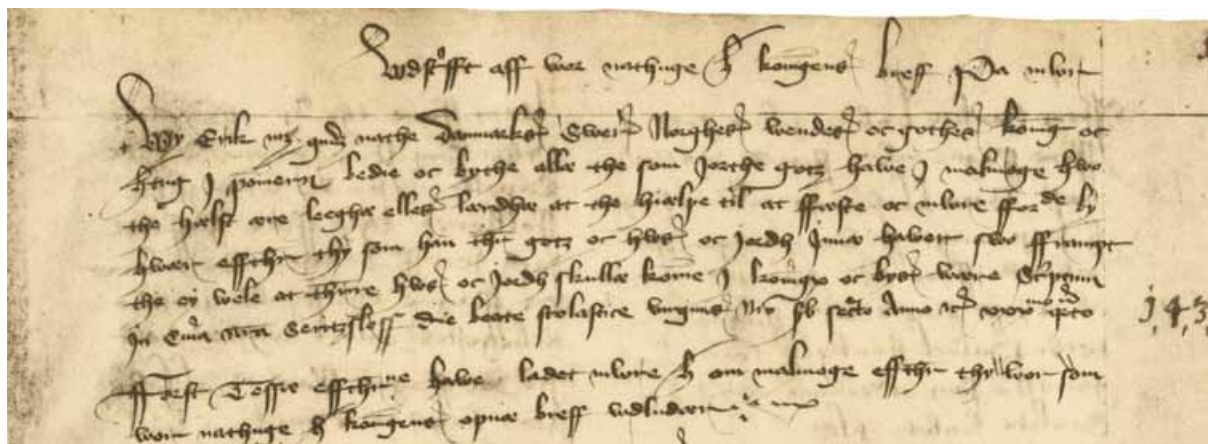 Vdskrifft aff wor nathuge h konungens breff paa mwren
Wy Erik mz gudz nathe Danmarks Sweries Norghes wendes oc gothes konung oc
htug j pomeren bedie oc bythe allæ the som jorthe gotz hawe j malmoge hwo
the hælst ære leeghæ elles lærdhæ at the hiælpe til at ffæste oc mwre fforde by
hwær effthr thy som han thr gotz oc hws oc jordh jnnæ hawer swo fframpt
the ey wele at there hws oc jordh skullæ kome j konings oc byes wære Scriptum
jn die beate scolastice virginis nostro sub secreto Anno
143
Fførst Tessæ effthrne hawe ladet mwre h om malmoge effthr thy wor som
wor nathuge h konungens opnæ breff vdludær